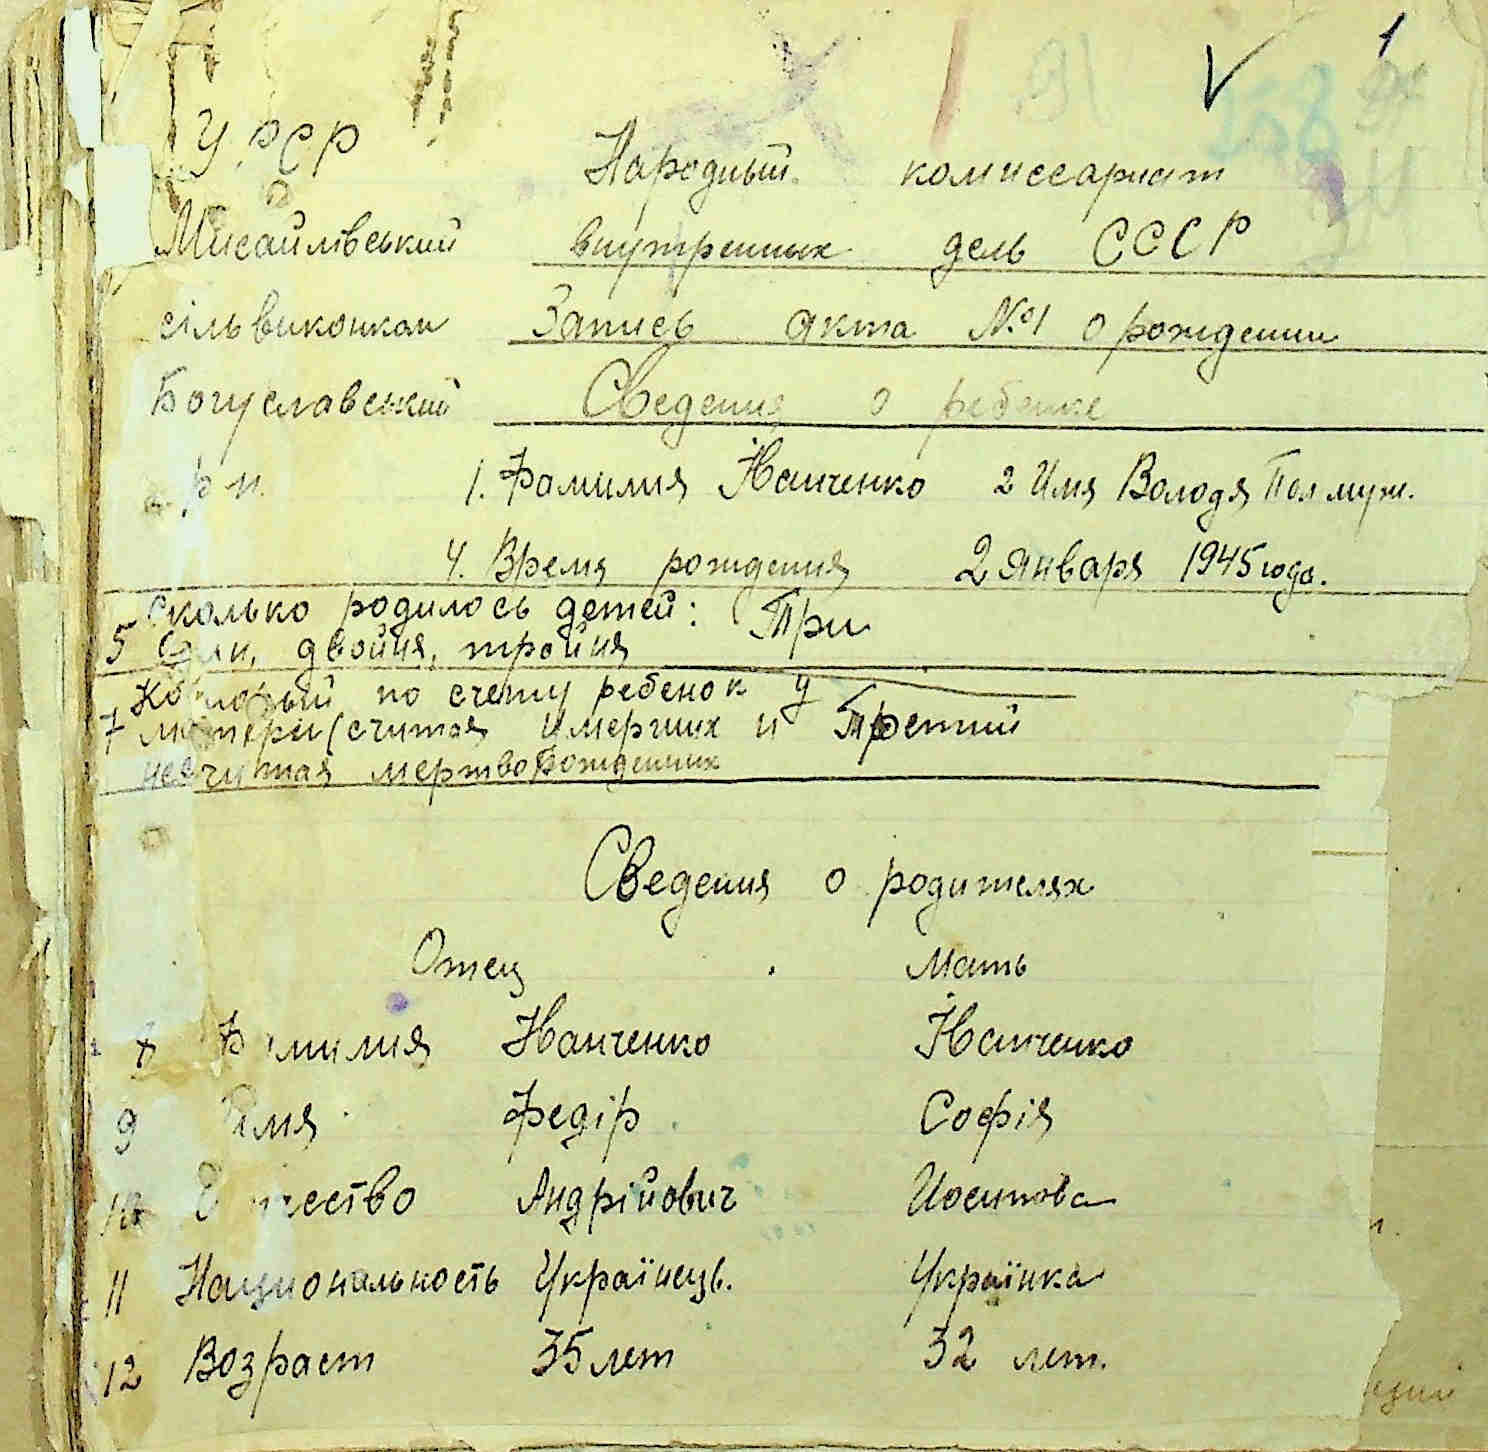 1
УРСР Народный комиссариат
Мисайлівський внутренных дель СССР
сільвиконком Запись акта №1 о рождении
Богуславський Сведения о ребенке
р н. 1. Фамилия Иванченко 2 Имя Володя Пол муж.
4. Время рождения 2 Января 1945 года.
5 Сколько родилось детей: Три
один, двойня, тройня
Который по счету ребенок у
7 матери (считая умерших и Третий
несчитая мертворожденных
Сведения о родителях
Отец Мать
8 Фамилия Иванченко Иванченко
9 Имя Федір Софія
10 Отчество Андрійович Иосипова
11 Национальность Українець. Українка
12 Возраст 35 лет 32 лет.